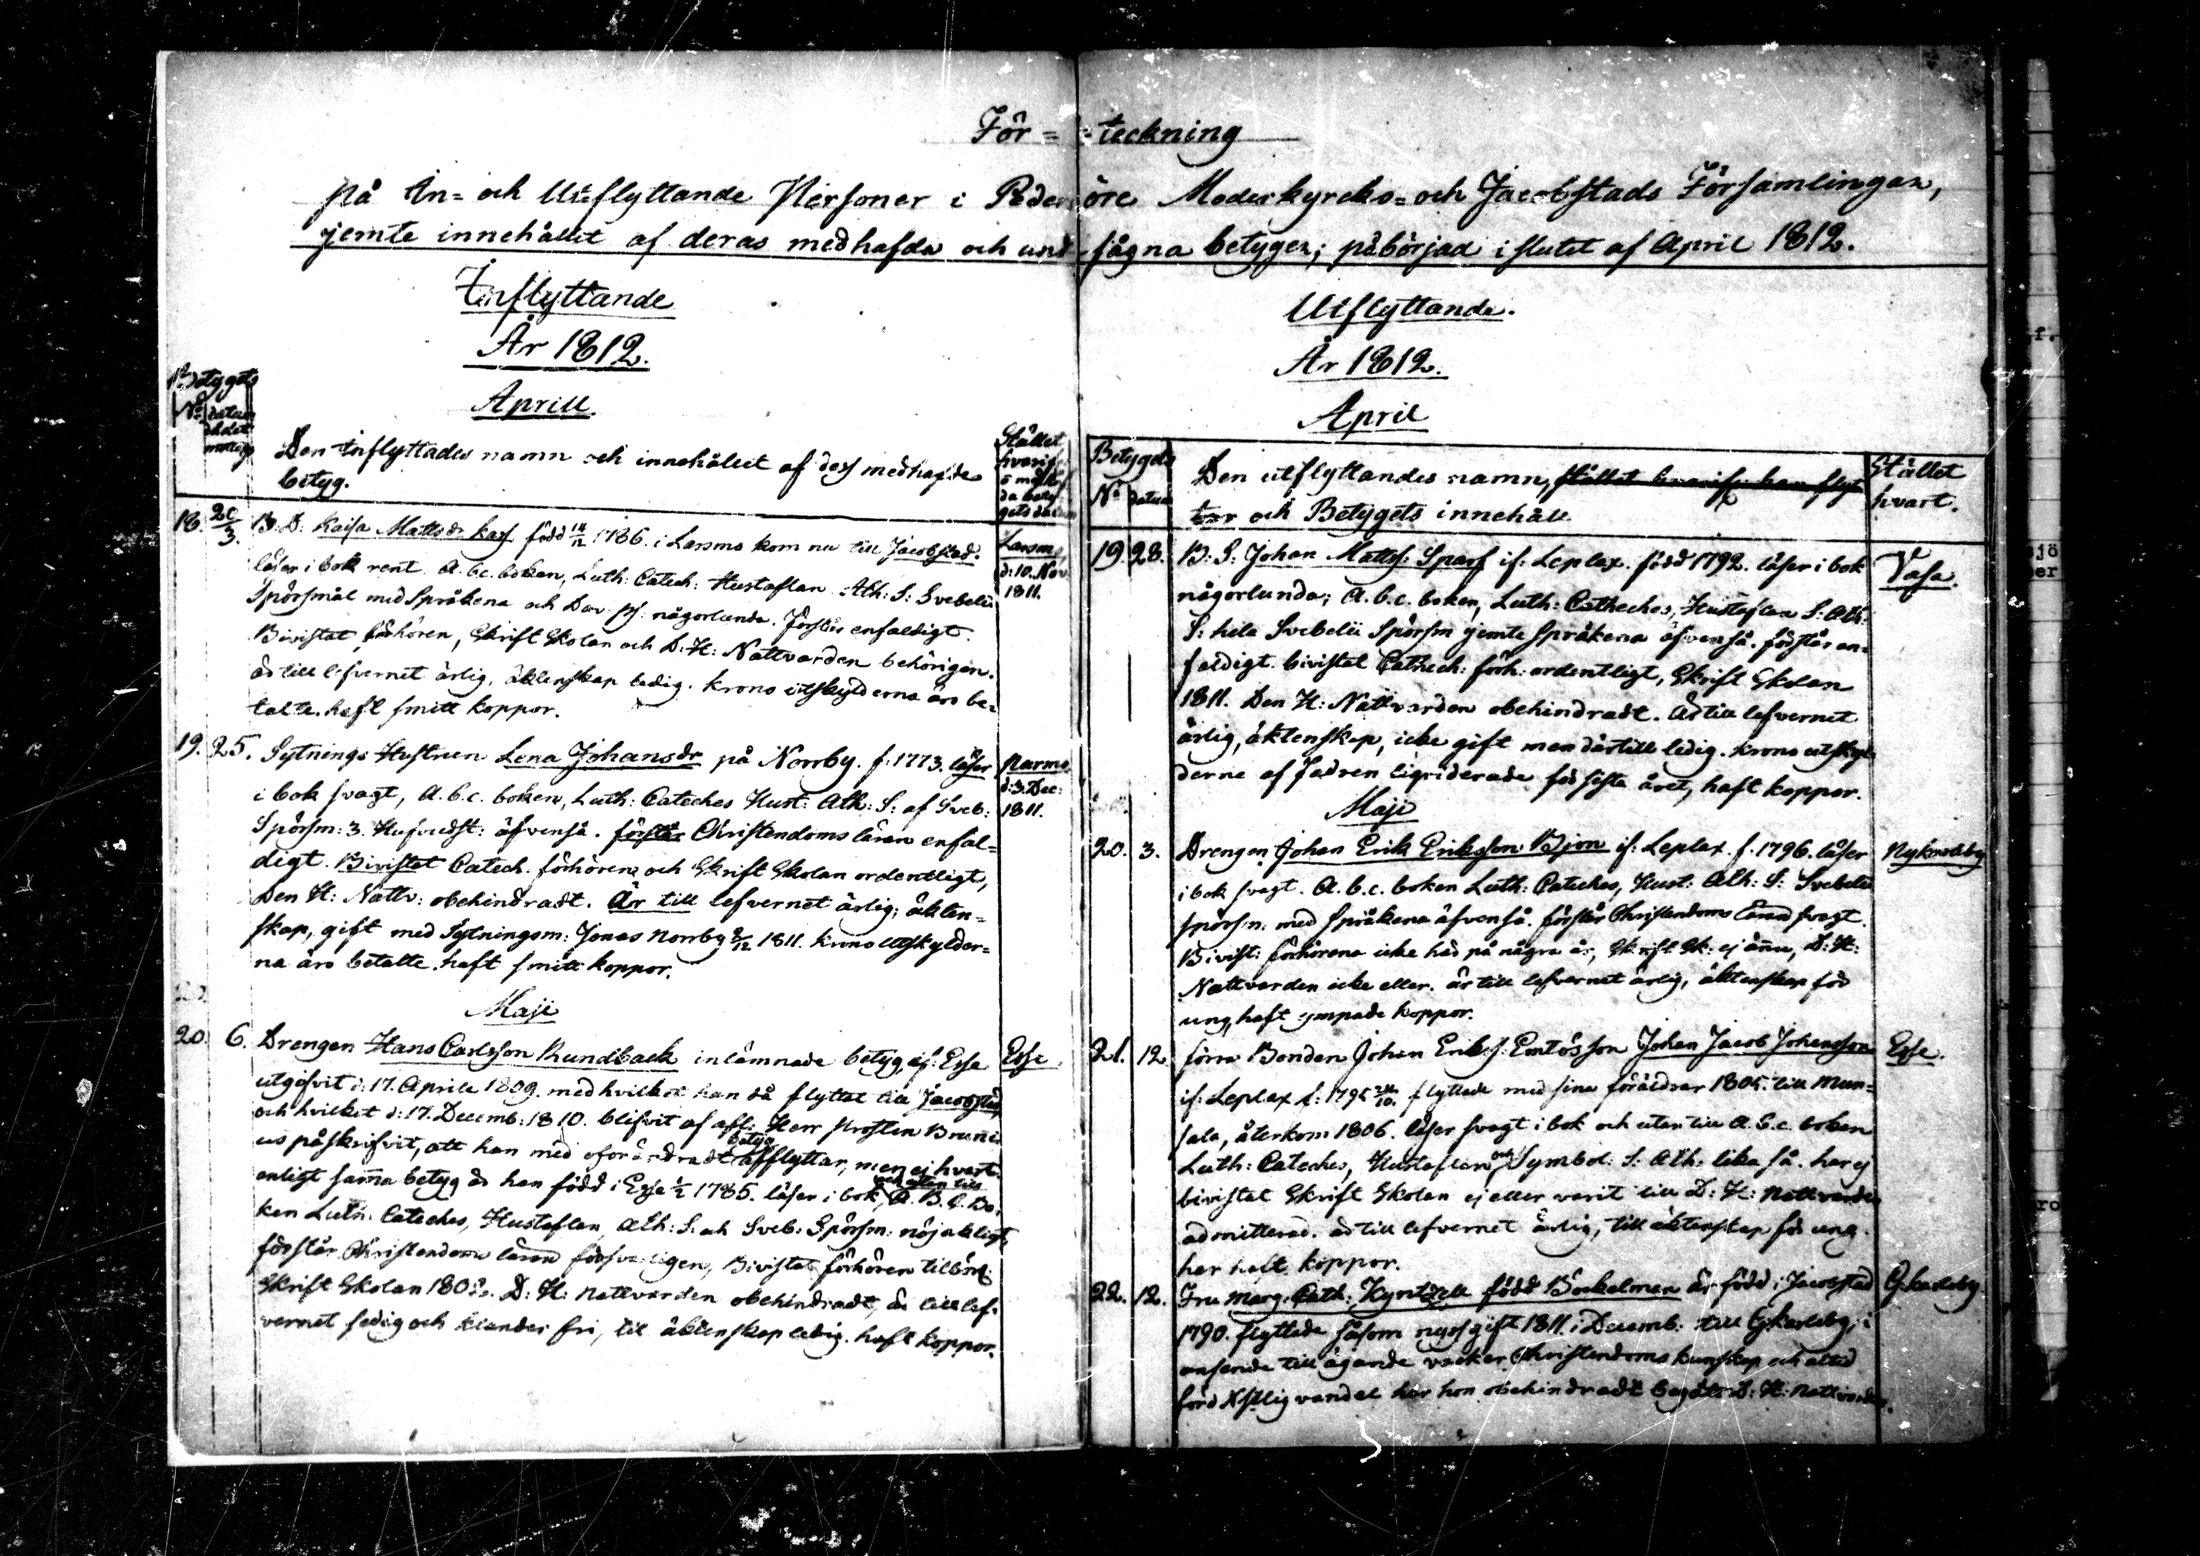 För = teckning
på In- och Utflyttande Personer i Pedersöre Moderkyrcko- och Jacobstads Församlingar,
jemte innehållet af deras medhafda och undfågna betyger; påbörjad i slutet af April 1812.
Inflyttande
År 1812.
Aprill.
Betygets
No datum
Den Inflyttades namn och innehållet af dess medhafde
betyg.
Stället
18. 20/3. B. D. Kaisa Mattsdr Karf född 14/12 1786. i Larsmo kom nu till Jacobstad.
Larsmo
d: 10. Nov.
1811.
läser i bok rent. A. b.c. boken, Luth: Catech: Hustaflan Ath: S: Svebelii
Spörsmål med Språkena och Dav. ps. någorlunda. Förstår enfaldigt.
Bivistat förhören, Skrift Skolan och D. H: Nattvarden behörigen.
är till lefvernet ärlig, äktenskap ledig. Krono utskylderna äro be-
talte. haft smitt koppor.
19. 25. Sytnings Hustrun Lena Johansdr på Norrby. f. 1773. läser
d: 3. Dec:
1811.
i bok svagt, A. b. c. boken, Luth: Cateches Hust: Ath: S: af Sveb:
Spörsm: 3. Hufvudst: äfvenså. förstår Christendoms läran enfal-
digt. Bivistat Catech. förhören och Skrift Skolan ordentligt,
Den H: Nattv: obehindradt. Är till lefvernet ärlig; äkten-
skap, gift med Sytningsm: Jonas Norrby 8/12 1811. Krono Utskylder-
na äro betalte. haft smitt koppor.
Maji
20. 6. Drengen Hans Carlsson Rundback inlämnade betyg if: Esse
Esse.
utgifvit d: 17. Aprill 1809. med hvilket han då flyttat till Jacobstad,
och hvilket d: 17. Decemb: 1810. blifvit af afl: Herr Prosten Brunni-
us påskrifvit, att han med oförändradt betyg afflyttar, men ej hvart.
enligt samma betyg är han född i Esse 1/2 1785. läser i bok, och utan till A. B. C. Bo-
ken Luth: Cateches, Hustaflan, Ath: S. och Sveb: Spörsm: nöjaktigt,
förstår Christendoms läran försvarligen, Bivistat förhören tillbörl:
Skrift Skolan 180 . D: H: Nattvarden obehindradt, är till lef-
vernet sedig och klander fri, til äktenskap ledig. haft koppor.
Utflyttande.
År 1812.
April
Betygets
No datum
Den utflyttandes namn, stället hvarifr: han flyt-
tar och Betygets innehåll.
Stället
hvart.
19. 28. B: S: Johan Matts: Sparf if: Leplax. född 1792. läser i bok
Vasa.
någorlunda; A. b. c. boken, Luth: Catheches, Hustaflan S: Ath:
S: hela Svebelii Spörsm jemte Språkena äfvenså. förstår en-
faldigt. bivistat Cathech: förh: ordentligt, Skrift Skolan
1811. Den H: Nattvarden obehindradt. Är till lefvernet
ärlig, äktenskap, icke gift men därtill ledig. Krono utskyl-
derne af Fadren liqviderade för sista året, haft koppor.
Maji
20. 3. Drengen Johan Erik Eriksson Bjon if: Leplax f. 1796. läser
Nykarleby
i bok svagt. A. b. c. boken Luth: Cateches, Hust: Ath: S: Svebelii
spörsm. med Språkena äfvenså. förstår Christendoms läran svagt.
Bivist: förhörena icke här på några år, Skrift Sk: ej ännu, D: H:
Nattvarden icke eller. är till lefvernet ärlig, äktenskap för
ung, haft ympade koppor.
21. 12. förra Bonden Johan Erik:s: Emtös son Johan Jacob Johansson
Esse.
if: Leplax f: 1795 24/10. flyttade med sina föräldrar 1805. till Mun-
sala, återkom 1806. läser svagt i bok och utan till A. b. c. boken
Luth: Cateches, Hustaflan och Symbol: S: Ath: lika så. har ej
bivistat Skrift Skolan ej eller varit till D: H: Nattvarden
admitterad. är till lefvernet ärlig, till äktenskap för ung.
har haft koppor.
22. 12. Fru Marg. Cath: Kyntzell född Böckelman är född i Jacobstad
Gkarleby
1790. flyttade såsom nyss gift 1811. i Decemb: till Gkarleby, i
anseende till ägande vacker Christendoms kunskap och altid
förd Xstlig vandel har hon obehindradt begått D: H: Nattvarden.